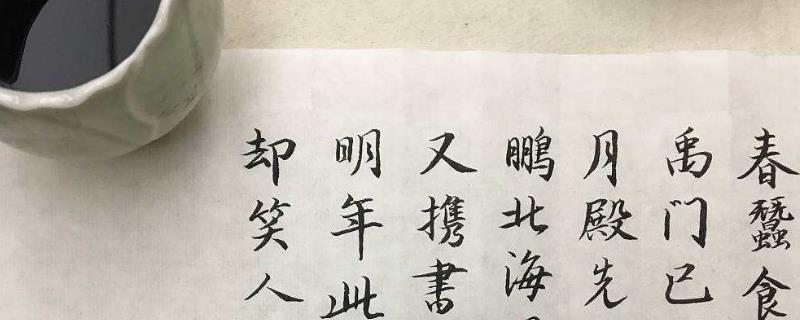 春蠶食
禹门已
月殿先
鹏北海
又携書
明年此
却笑人